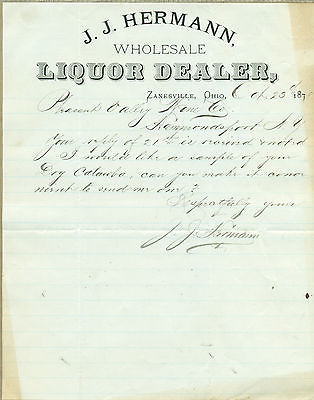 J. J. HERMANN,
WHOLESALE
LIQUOR DEALER,
ZANESVILLE, OHIO, Oct 23rd 187
Pleasant Valley Wine Co.
Hammondsport N. Y.
Your reply of 21st is received & noted
I would like a sample of your
Dry Catawba, can you make it conve
nient to send me one?
Respectfully yours
J. J. Hermann